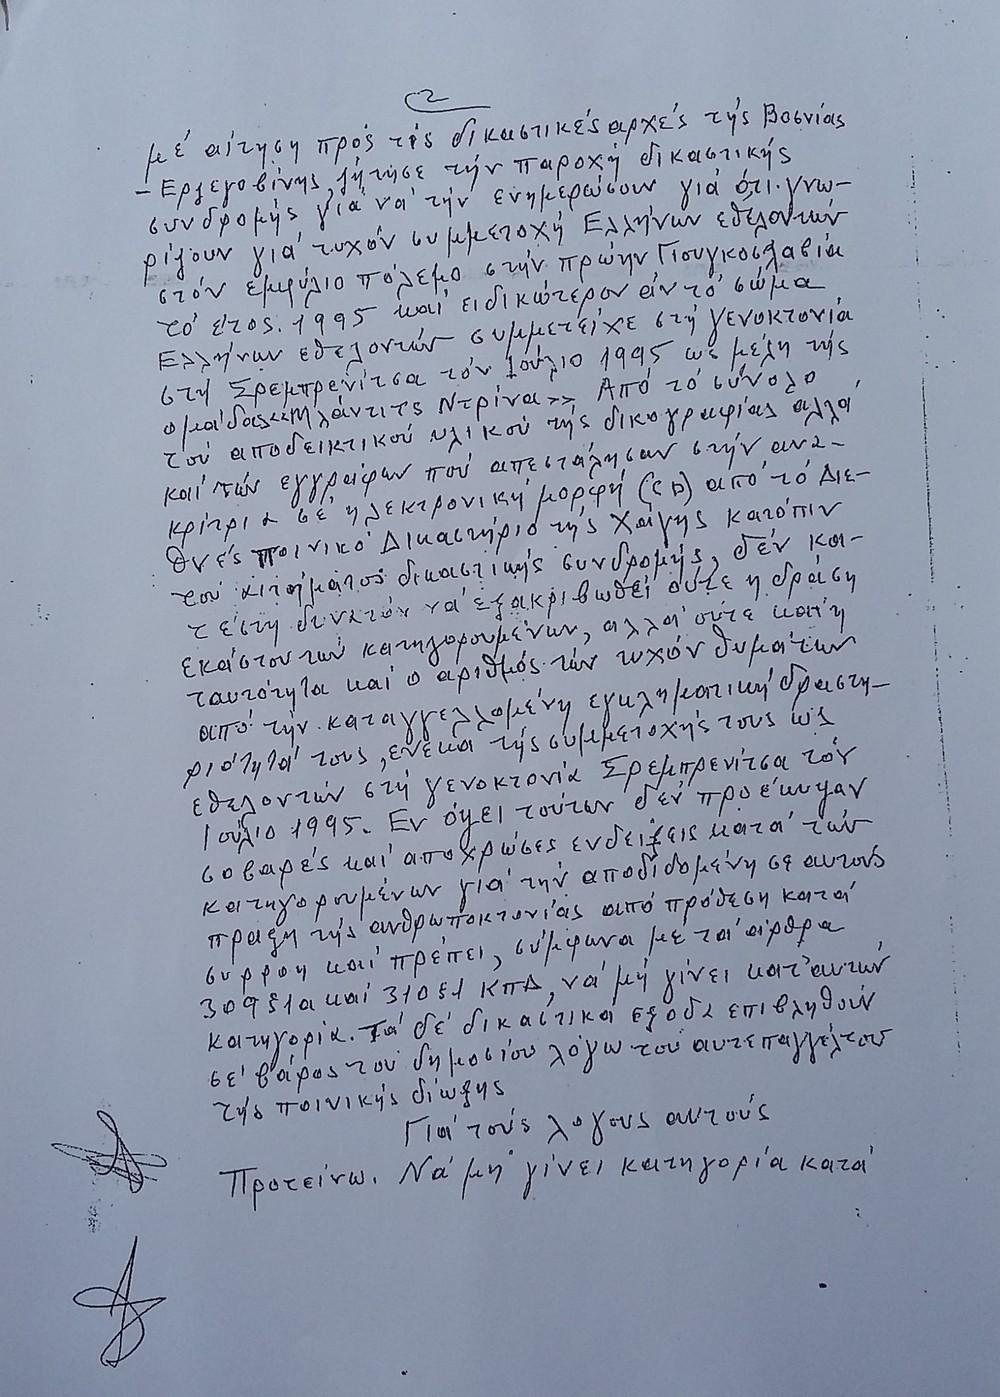 2
μέ αίτηση πρός τίς δικαστικές αρχές τής Βοσνίας
– Ερζεγοβίνης, ζήτησε τήν παροχή δικαστικής
συνδρομής γιά νά τήν ενημερώσουν γιά ότι γνω-
ρίζουν γιά τυχόν συμμετοχή Ελλήνων εθελοντών
στόν εμφύλιο πόλεμο στήν πρώην Γιουγκοσλαβία
τό έτος 1995 καί ειδικώτερον άν τό σώμα
Ελλήνων εθελοντών συμμετείχε στή γενοκτονία
στή Σρεμπρενίτσα τόν Ιούλιο 1995 ως μέλη τής
ομάδας <<Μλάντιτς Ντρίνα>> Από τό σύνολο
τού αποδεικτικού υλικού τής δικογραφίας αλλά
καί τών εγγράφων πού απεστάλησαν στήν ανα-
κρίτρια σέ ηλεκτρονική μορφή (CD) από τό Διε-
θνές ποινικό Δικαστήριο τής Χάγης κατόπιν
τού αιτήματος δικαστικής συνδρομής, δέν κα-
τέστη δυνατόν νά εξακριβωθεί ούτε η δράση
εκάστου τών κατηγορουμένων, αλλά ούτε καί η
ταυτότητα καί ο αριθμός τών τυχόν θυμάτων
από τήν καταγγελλομένη εγκληματική δραστη-
ριότητά τους, ένεκα τής συμμετοχής τους ως
εθελοντών στή γενοκτονία Σρεμπρενίτσα τόν
Ιούλιο 1995. Εν όψει τούτων δέν προέκυψαν
σοβαρές καί αποχρώσες ενδείξεις κατά τών
κατηγορουμένων γιά τήν αποδιδομένη σε αυτούς
πράξη τής ανθρωποκτονίας από πρόθεση κατά
συρροή καί πρέπει, σύμφωνα με τά άρθρα
309§1α καί 310§1 ΚΠΔ, νά μή γίνει κατ' αυτών
κατηγορία. Τά δέ δικαστικά έξοδα επιβληθούν
σέ βάρος τού δημοσίου λόγω τού αυτεπαγγέλτου
τής ποινικής δίωξης
Γιά τούς λόγους αυτούς
Προτείνω. Νά μή γίνει κατηγορία κατά